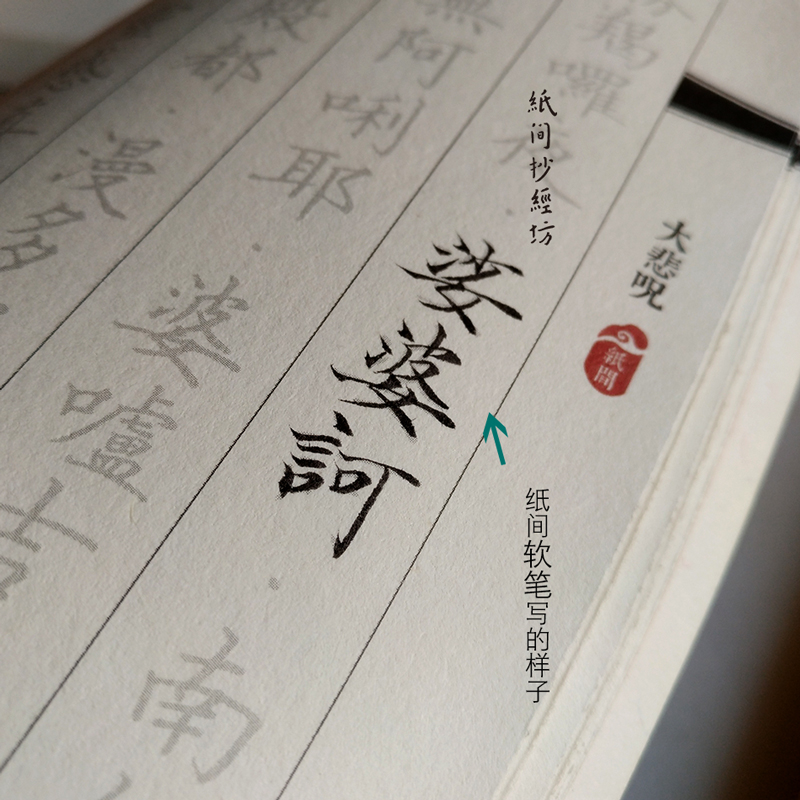 大悲咒
紙間
紙间抄經坊
纸间软笔写的样子
羯囉夜·娑婆訶·南
無阿唎耶·婆嚧吉
殿都·漫多